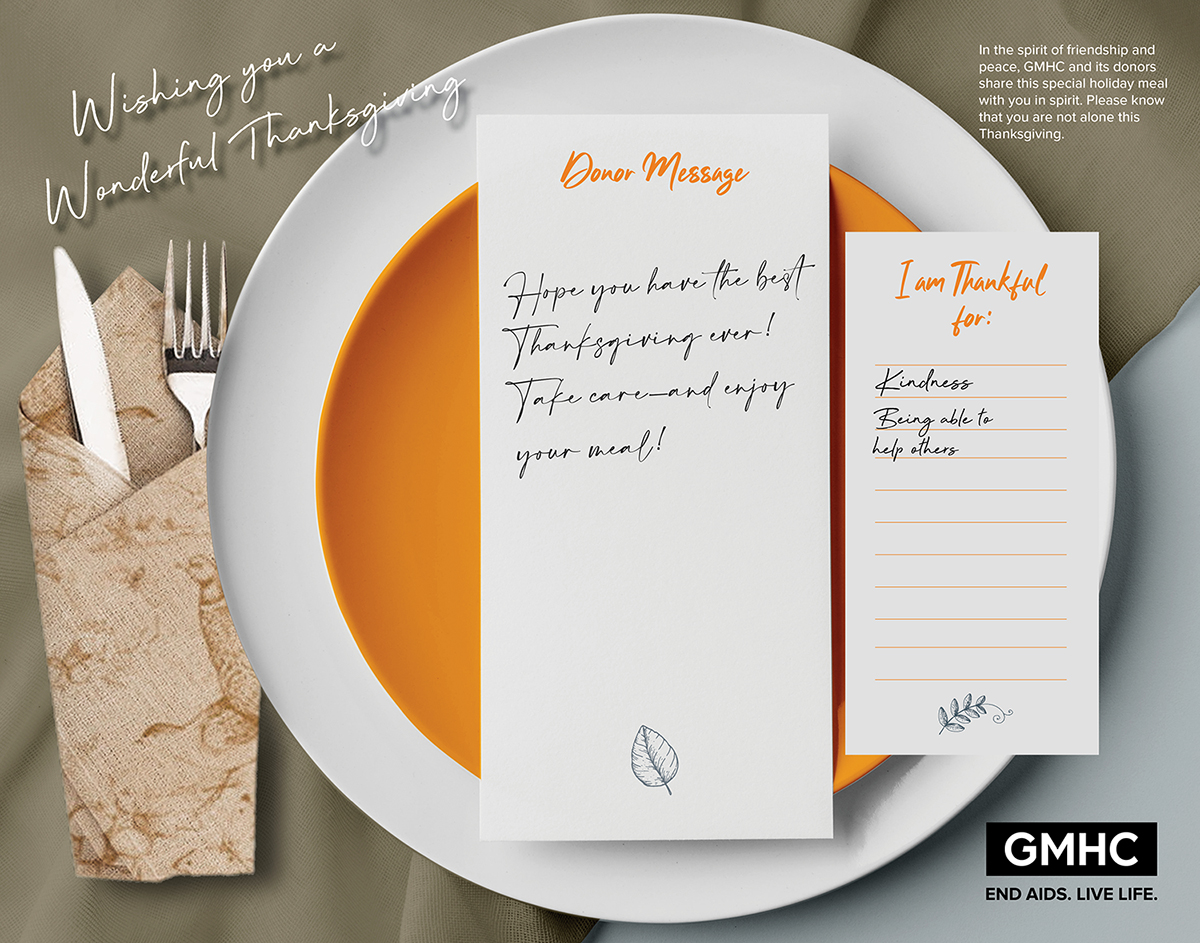 Wishing you a
Wonderful Thanksgiving
In the spirit of friendship and
peace, GMHC and its donors
share this special holiday meal
with you in spirit. Please know
that you are not alone this
Thanksgiving.
Donor Message
Hope you have the best
Thanksgiving ever!
Take care—and enjoy
your meal!
I am Thankful
for:
Kindness
Being able to
help others
GMHC
END AIDS. LIVE LIFE.